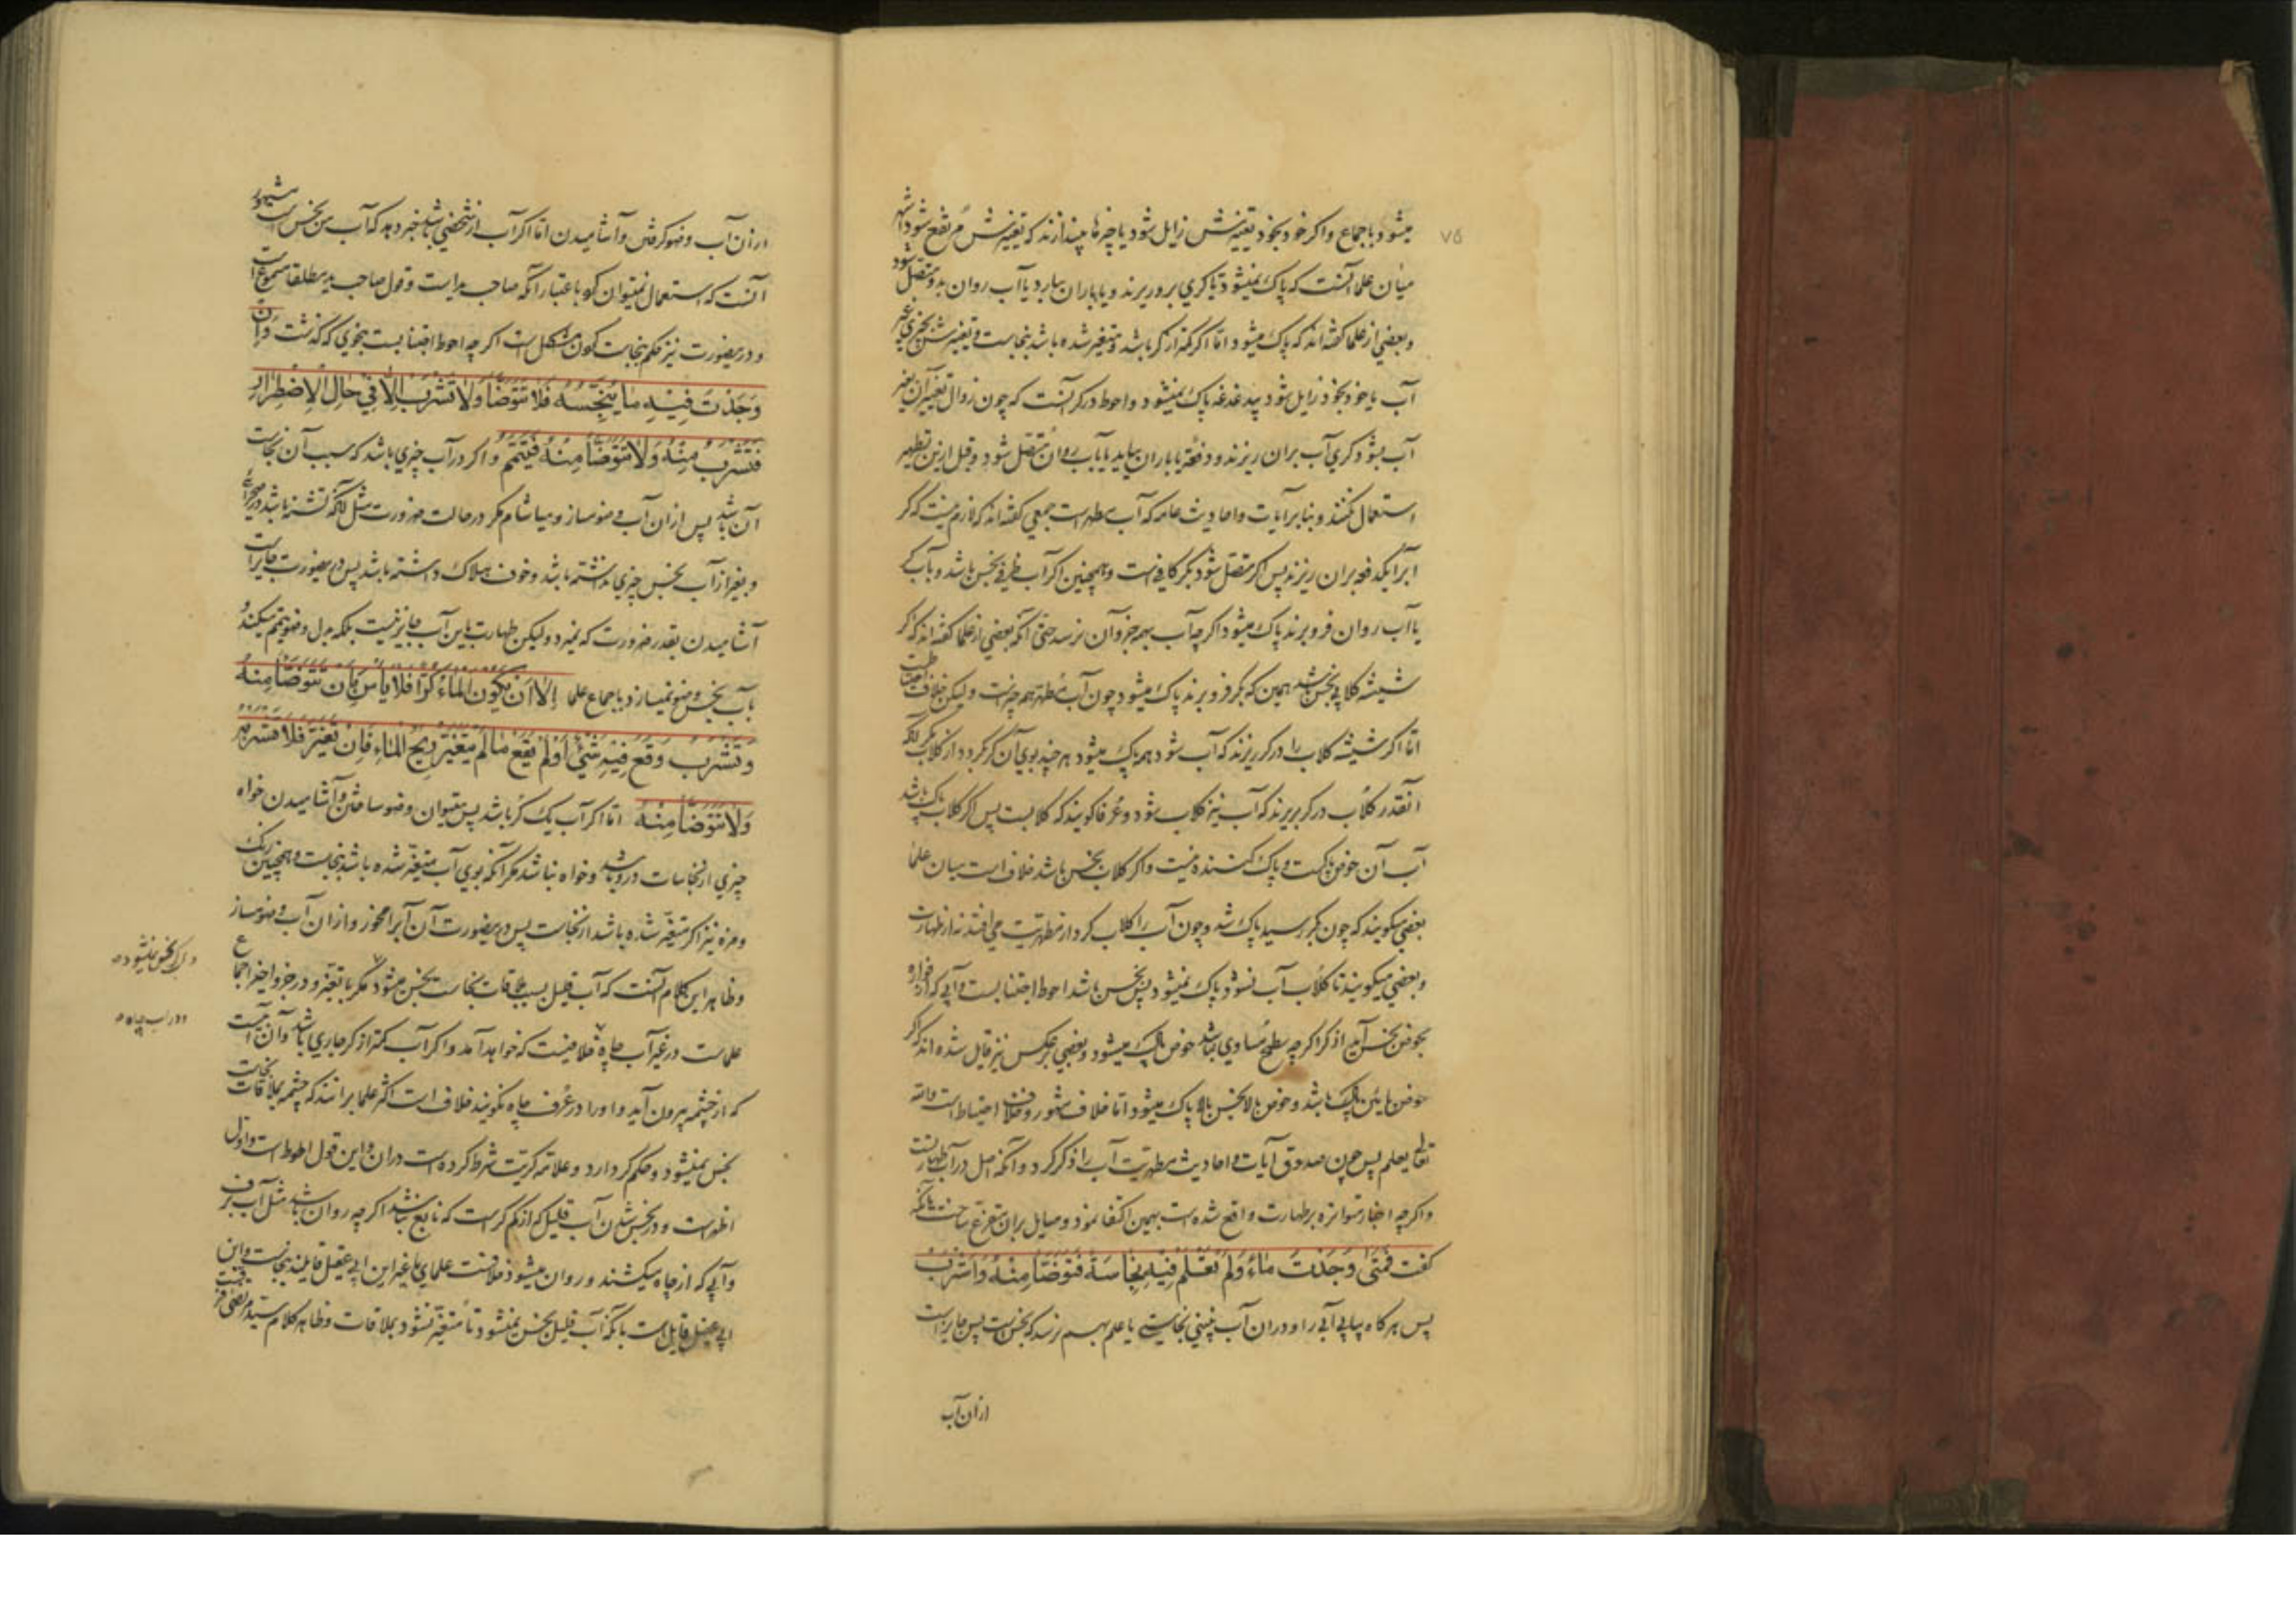 میشود باجماع و اکر خود بخود تغیرش زایل شود یا چیزها بیندازند که تغیرش مرتفع شود اشهر
۷۵
میان علما آنست که پاک نمیشود تا کری برو ریزند و یا باران ببارد یا آب روان بدو متصل شود
و بعضی از علما کفته‌اند که پاک میشود اما اکر کمتر از کر باشد و متغیر شده باشد بنجاست و تغیرش بچیزی غیر
آب یا خود بخود زایل شود بی دغدغه پاک نمیشود و احوط در کر آنست که چون زوال تغییر آن بغیر
آب بشود کری آب بران ریزند دفعة یا باران بیاید یا بآب روان متصل شود و قبل ازین تطهیر
استعمال نکنند و بنا بر آیات و احادیث عامه که آب مطهر است جمعی کفته‌اند که لازم نیست که کر
آبرا یکدفعه بران ریزند پس اکر متصل شود بکر کافیست و همچنین اکر آب ظرفی نجس باشد و بآب کر
یا آب روان فرو برند پاک میشود اکرچه آب بهمه جزو آن نرسد حتی آنکه بعضی از علما کفته‌اند که اکر
شیشه کلابی نجس باشد همین که بکر فرو برند پاک میشود چون آب مطهر همه چیز است و لیکن خلاف احتیاطست
اما اکر شیشه کلاب را در کر ریزند که آب شود همه پاک میشود هر چند بوی آن کر کردد از کلاب مکر آنکه
آنقدر کلاب در کر بریزند که آب نیز کلاب شود و عرفا کویند که کلابست پس اکر کلاب پاک باشد
آب آن حوض پاکست و پاک کننده نیست و اکر کلاب نجس باشد خلاف است میان علما
بعضی میکویند که چون بکر رسید پاک شد و چون آب را کلاب کرد از مطهریت می افتد نه از طهارت
و بعضی میکویند تا کلاب آب نشود پاک نمیشود پس نجس باشد احوط اجتنابست و آبی که از فواره
بحوض نجس آید از کر اکرچه سطح مساوی نباشد حوض پاک میشود و بعضی بر عکس نیز قایل شده‌اند که اکر
حوض پائین پاک باشد و حوض بالا نجس بالا پاک میشود اما خلاف مشهور و خلاف احتیاط است والله
تعالی یعلم پس چون صدوق آیات و احادیث مطهریت آب را ذکر کرد و آنکه اصل در آب طهارتست
و اکرچه اخبار متواتره بر طهارت واقع شده است بهمین اکتفا نمود و مسایل بران متفرع ساخت بآنکه
کفت فَمَتی وَجَدْتَ مَاءً وَلَمْ تَعْلَمْ فِیْهِ نِجَاسَةً فَتَوَضَّأْ مِنْهُ وَاشْرَبْ
پس هر کاه بیابی آبی را و دران آب نبینی نجاستی یا علم بهم نرسد که نجس است پس جایز است
ازان آب
ازان آب وضو کرفتن و آشامیدن اما اکر آب از شخصی باشد خبر دهد که آب من نجس است مشهور
آنست که استعمال نمیتوان کرد باعتبار آنکه صاحب ید است و قول صاحب ید مطلقا مسموع است
و درینصورت نیز حکم بنجاست کردن مشکل است اکرچه احوط اجتنابست بنحوی که کذشت وَاِنْ
وَجَدْتَ فِیْهِ مَا یُنَجِّسُهُ فَلَا تَتَوَضَّأْ وَلَا تَشْرَبْ اِلَّا فِیْ حَالِ الْاِضْطِرَارِ
فَتَشْرَبُ مِنْهُ وَلَا تَتَوَضَّأْ مِنْهُ فَتَیَمَّمْ و اکر در آب چیزی باشد که سبب آن نجاست
آن باشد پس ازان آب وضو مساز و میاشام مکر در حالت ضرورت مثل آنکه تشنه باشد در صحرائی
و بغیر از آب نجس چیزی نداشته باشد و خوف هلاک داشته باشد پس درینصورت جایز است
آشامیدن بقدر ضرورت که نمیرد و لیکن طهارت باین آب جایز نیست بلکه بدل وضو تیمم میکند و
بآب نجس وضو نمیسازد باجماع علما اِلَّا اَنْ یَکُوْنَ الْمَاءُ کُرًّا فَلَا بَأْسَ بِاَنْ تَتَوَضَّأَ مِنْهُ
وَتَشْرَبَ وَقَعَ فِیْهِ شَیْءٌ اَوْ لَمْ یَقَعْ مَا لَمْ یَتَغَیَّرْ رِیْحُ الْمَاءِ فَاِنْ تَغَیَّرَ فَلَا تَشْرَبْهُ
وَلَا تَتَوَضَّأْ مِنْهُ اما اکر آب یک کر باشد پس میتوان وضو ساختن و آشامیدن خواه
چیزی از نجاسات درو باشد و خواه نباشد مکر آنکه بوی آب متغیر شده باشد بنجاست و همچنین رنک
و مزه نیز اکر متغیر شده باشد از نجاست پس درینصورت آن آبرا مخور و ازان آب وضو مساز
و ظاهر این کلام آنست که آب قلیل بسبب ملاقات نجاست نجس میشود مکر با تغیر و در جزو اخیر اجماع
علماست در غیر آب چاه خلاف نیست که خواهد آمد و اکر آب کمتر از کر جاری باشد و آن آبیست
که از چشمه بیرون آید و او را در عرف چاه نکویند خلاف است اکثر علما برانند که چشمه بملاقات نجاست
نجس نمیشود و حکم کر دارد و علامه کریت شرط کرده است دران و این قول احوط است و اول
اظهر است و در نجس شدن آب قلیل که از کم کر است که نابع نباشد اکرچه روان باشد مثل آب برف
و آبی که از چاه میکشند و روان میشود خلافست علمای ما غیر ابن ابی عقیل قایلند بنجاست و ابن
ابی عقیل قایل است بآنکه آب قلیل نجس نمیشود تا متغیر نشود بملاقات و ظاهر کلام سید مرتضی
و کر نجس نمیشود
و در آب چاه